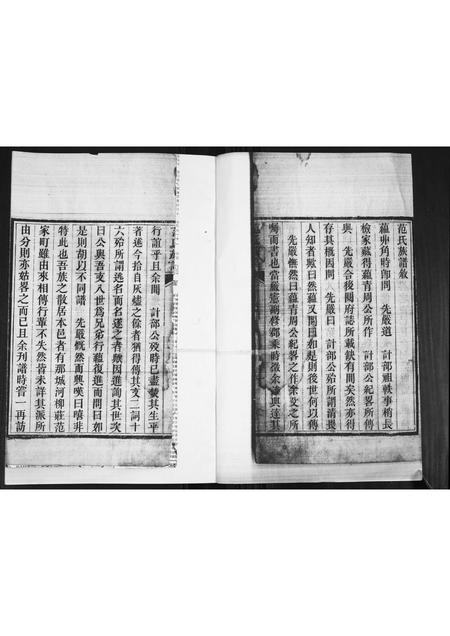 范氏族譜敘
蘊丱角時即聞　先嚴道　計部祖軼事稍長
檢家藏得蘊青周公所作　計部公紀畧所傳
與　先嚴合後閱府誌所載缺有間矣然亦得
存其概因問　先嚴曰　計部公殆所謂清畏
人知者歟曰然蘊又問曰如是則後世何以傳
先嚴憮然曰蘊青周公紀畧之作
而書也當嚴憲副修郡乘時徵余
行誼乎且余聞　計部公歿時已盡焚其生平
著述今拾自灰燼之餘者猶得傳其文二詞十
六殆所謂逃名而名逐之者歟因進詢其世次
曰公與吾支八世爲兄弟行蘊復進而問曰郭
是則胡以不同譜　先嚴慨然而興嘆曰嘻非
特此也吾族之散居本邑者有那城河柳莊范
家町雖由來相傳行輩不失然皆未詳其派所
由分則亦姑畧之而已且余刊譜時嘗一再訪